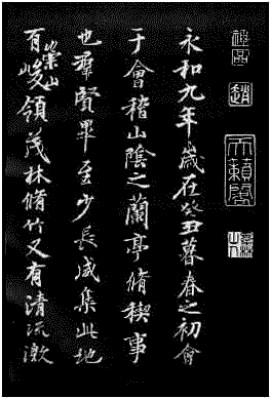 永和九年歲在癸丑暮春之初會
于會稽山陰之蘭亭脩稧事
也羣賢畢至少長咸集此地
有崇山峻領茂林脩竹又有清流激
趙
天籟閣